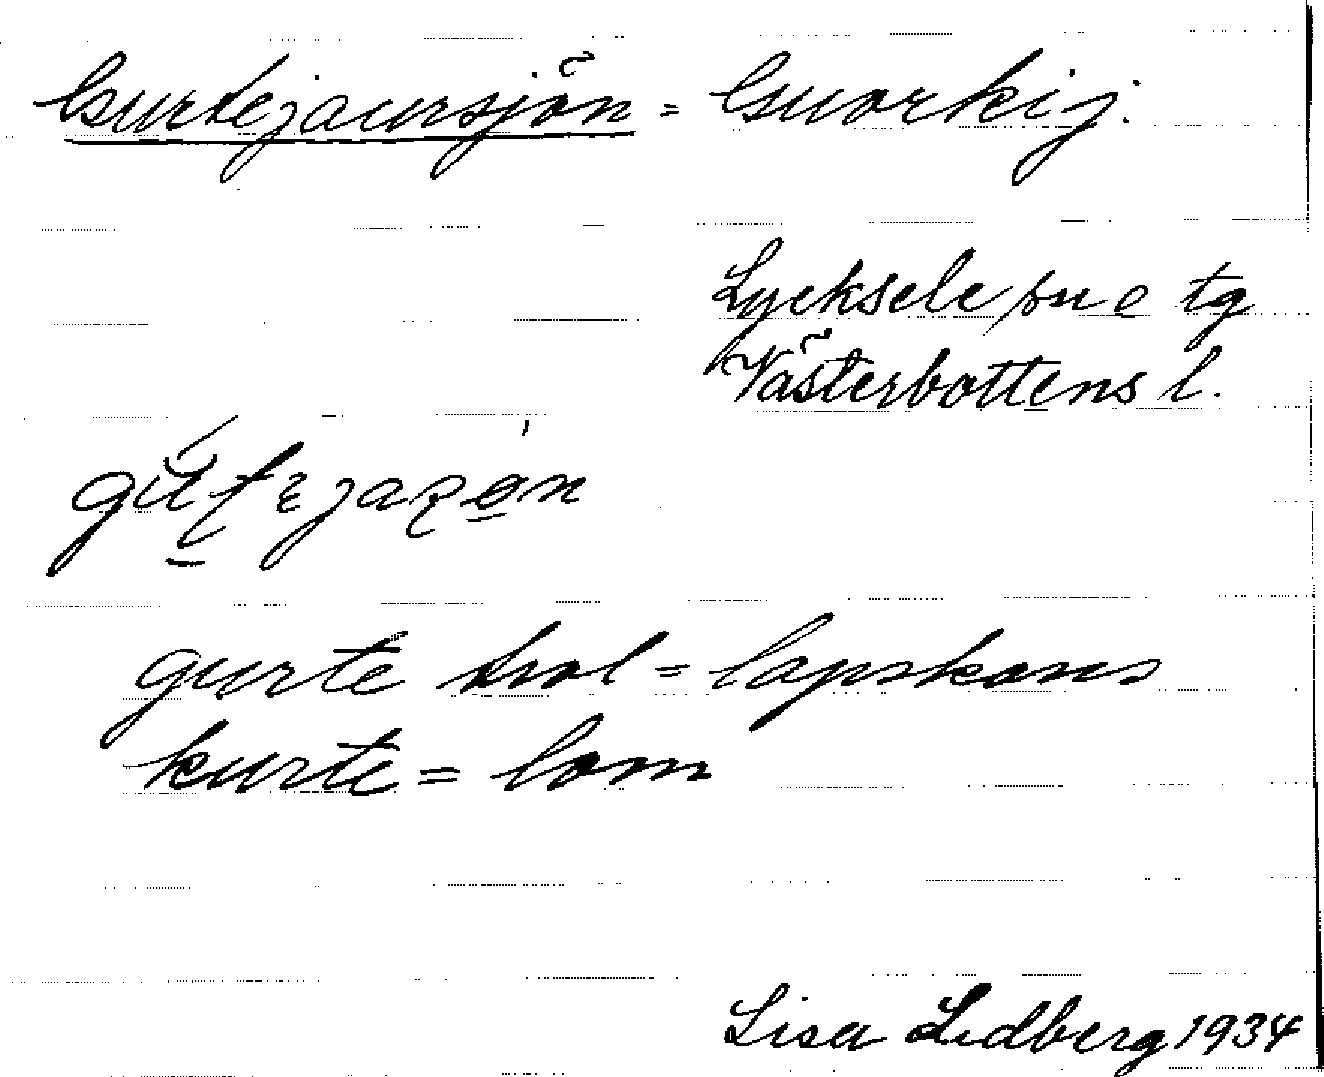 Gurtejaursjön = Guorkij.
Lycksele sn o tg
Västerbottens l.
gurte hol = lapskans
kurte = lom
Lisa Lidberg 1934